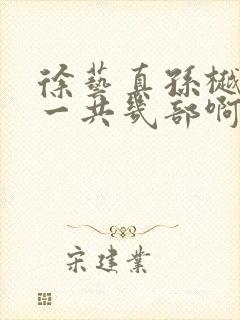 徐藝真孫樾
一共幾部啊
宋建業